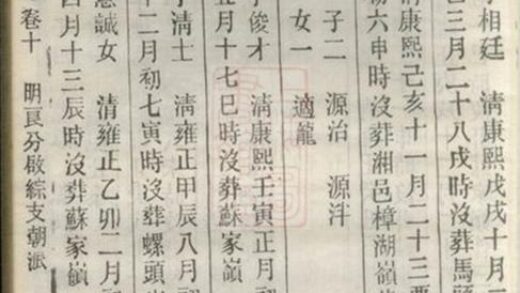 相廷 清康熙戊戌十月
三月二十八戌時沒葬馬
清康熙己亥十一月二十三
初六申時沒葬湘邑樟湖嶺
子二 源治 源泮
女一 適龍
俊才 清康熙壬寅正月
月十七巳時沒葬蘇家嶺
清士 清雍正甲辰八月
十二月初七寅時沒葬螺頭
誠女 清雍正乙卯二月
四月十三辰時沒葬蘇家嶺
卷十 明良分啟綜支朝派